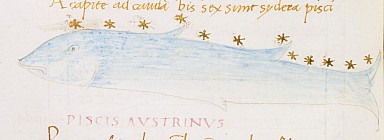 A capite ad caudā bis sex sunt sydera pisci
PISCIS AVSTRINUS